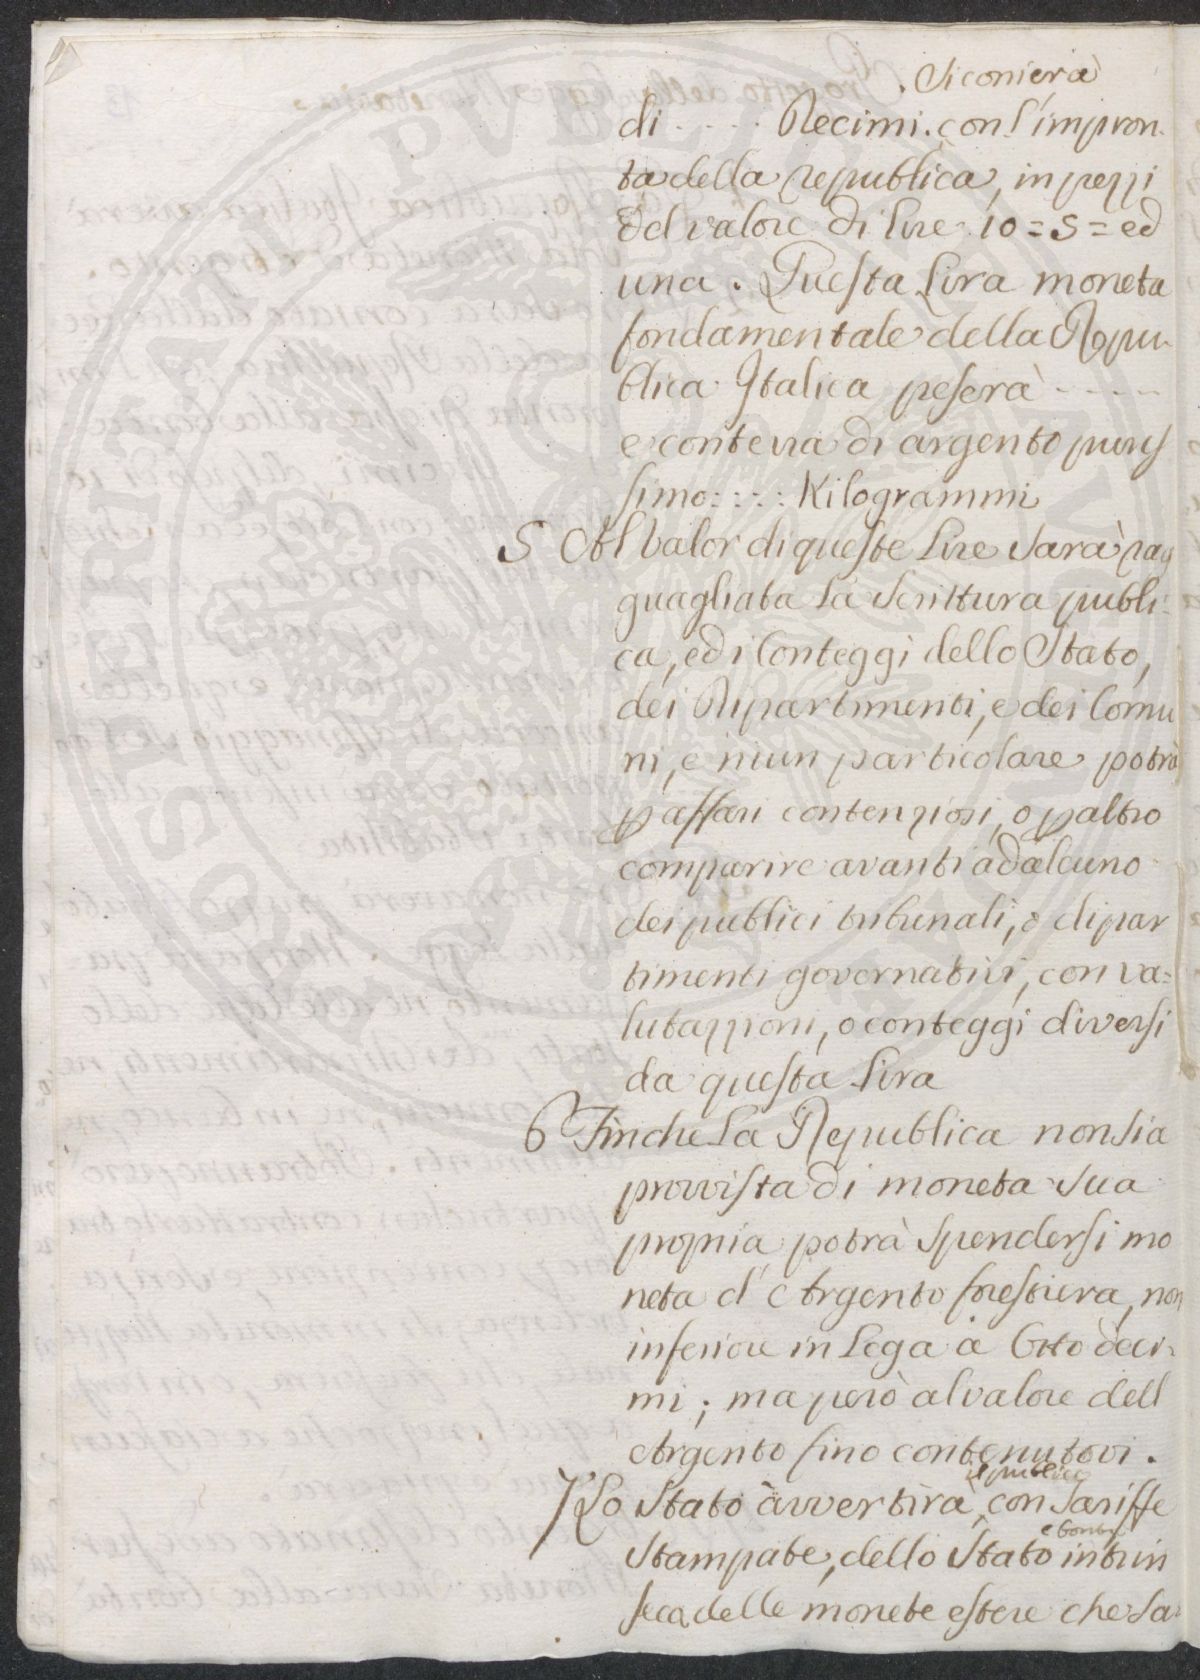 . Si conierà
di - - - - - Decimi. con l'impron
ta della republica, in pezzi
del valore di lire. 10 = 5 = ed
una. Questa Lira moneta
fondamentale della Repu-
blica Italica peserà - - - -
e conterrà di argento puris
simo: : : : Kilogrammi
5 Al valor di queste Lire sarà rag
guagliata la scrittura publi-
ca, ed i Conteggi dello Stato,
dei Ripartimenti, e dei Comu
ni, e niun particolare potrà
p affari contenziosi, o p altro
comparire avanti ad alcuno
dei publici tribunali, o dipar
timenti governativi, con va=
lutazzioni, o conteggi diversi
da questa Lira
6 Finche La Republica non sia
provvista di moneta sua
propria, potrà spendersi mo
neta d'Argento forestiera, non
inferiore in Lega a Otto deci-
mi; ma però al valore dell
Argento fino contenutovi.
il publico
7 Lo Stato avvertirà, con Tariffe
e bontà
Stampate, dello Stato intrin
seca delle monete estere che sa-
SOSPERITATI PVBLICAE AVGENDAE